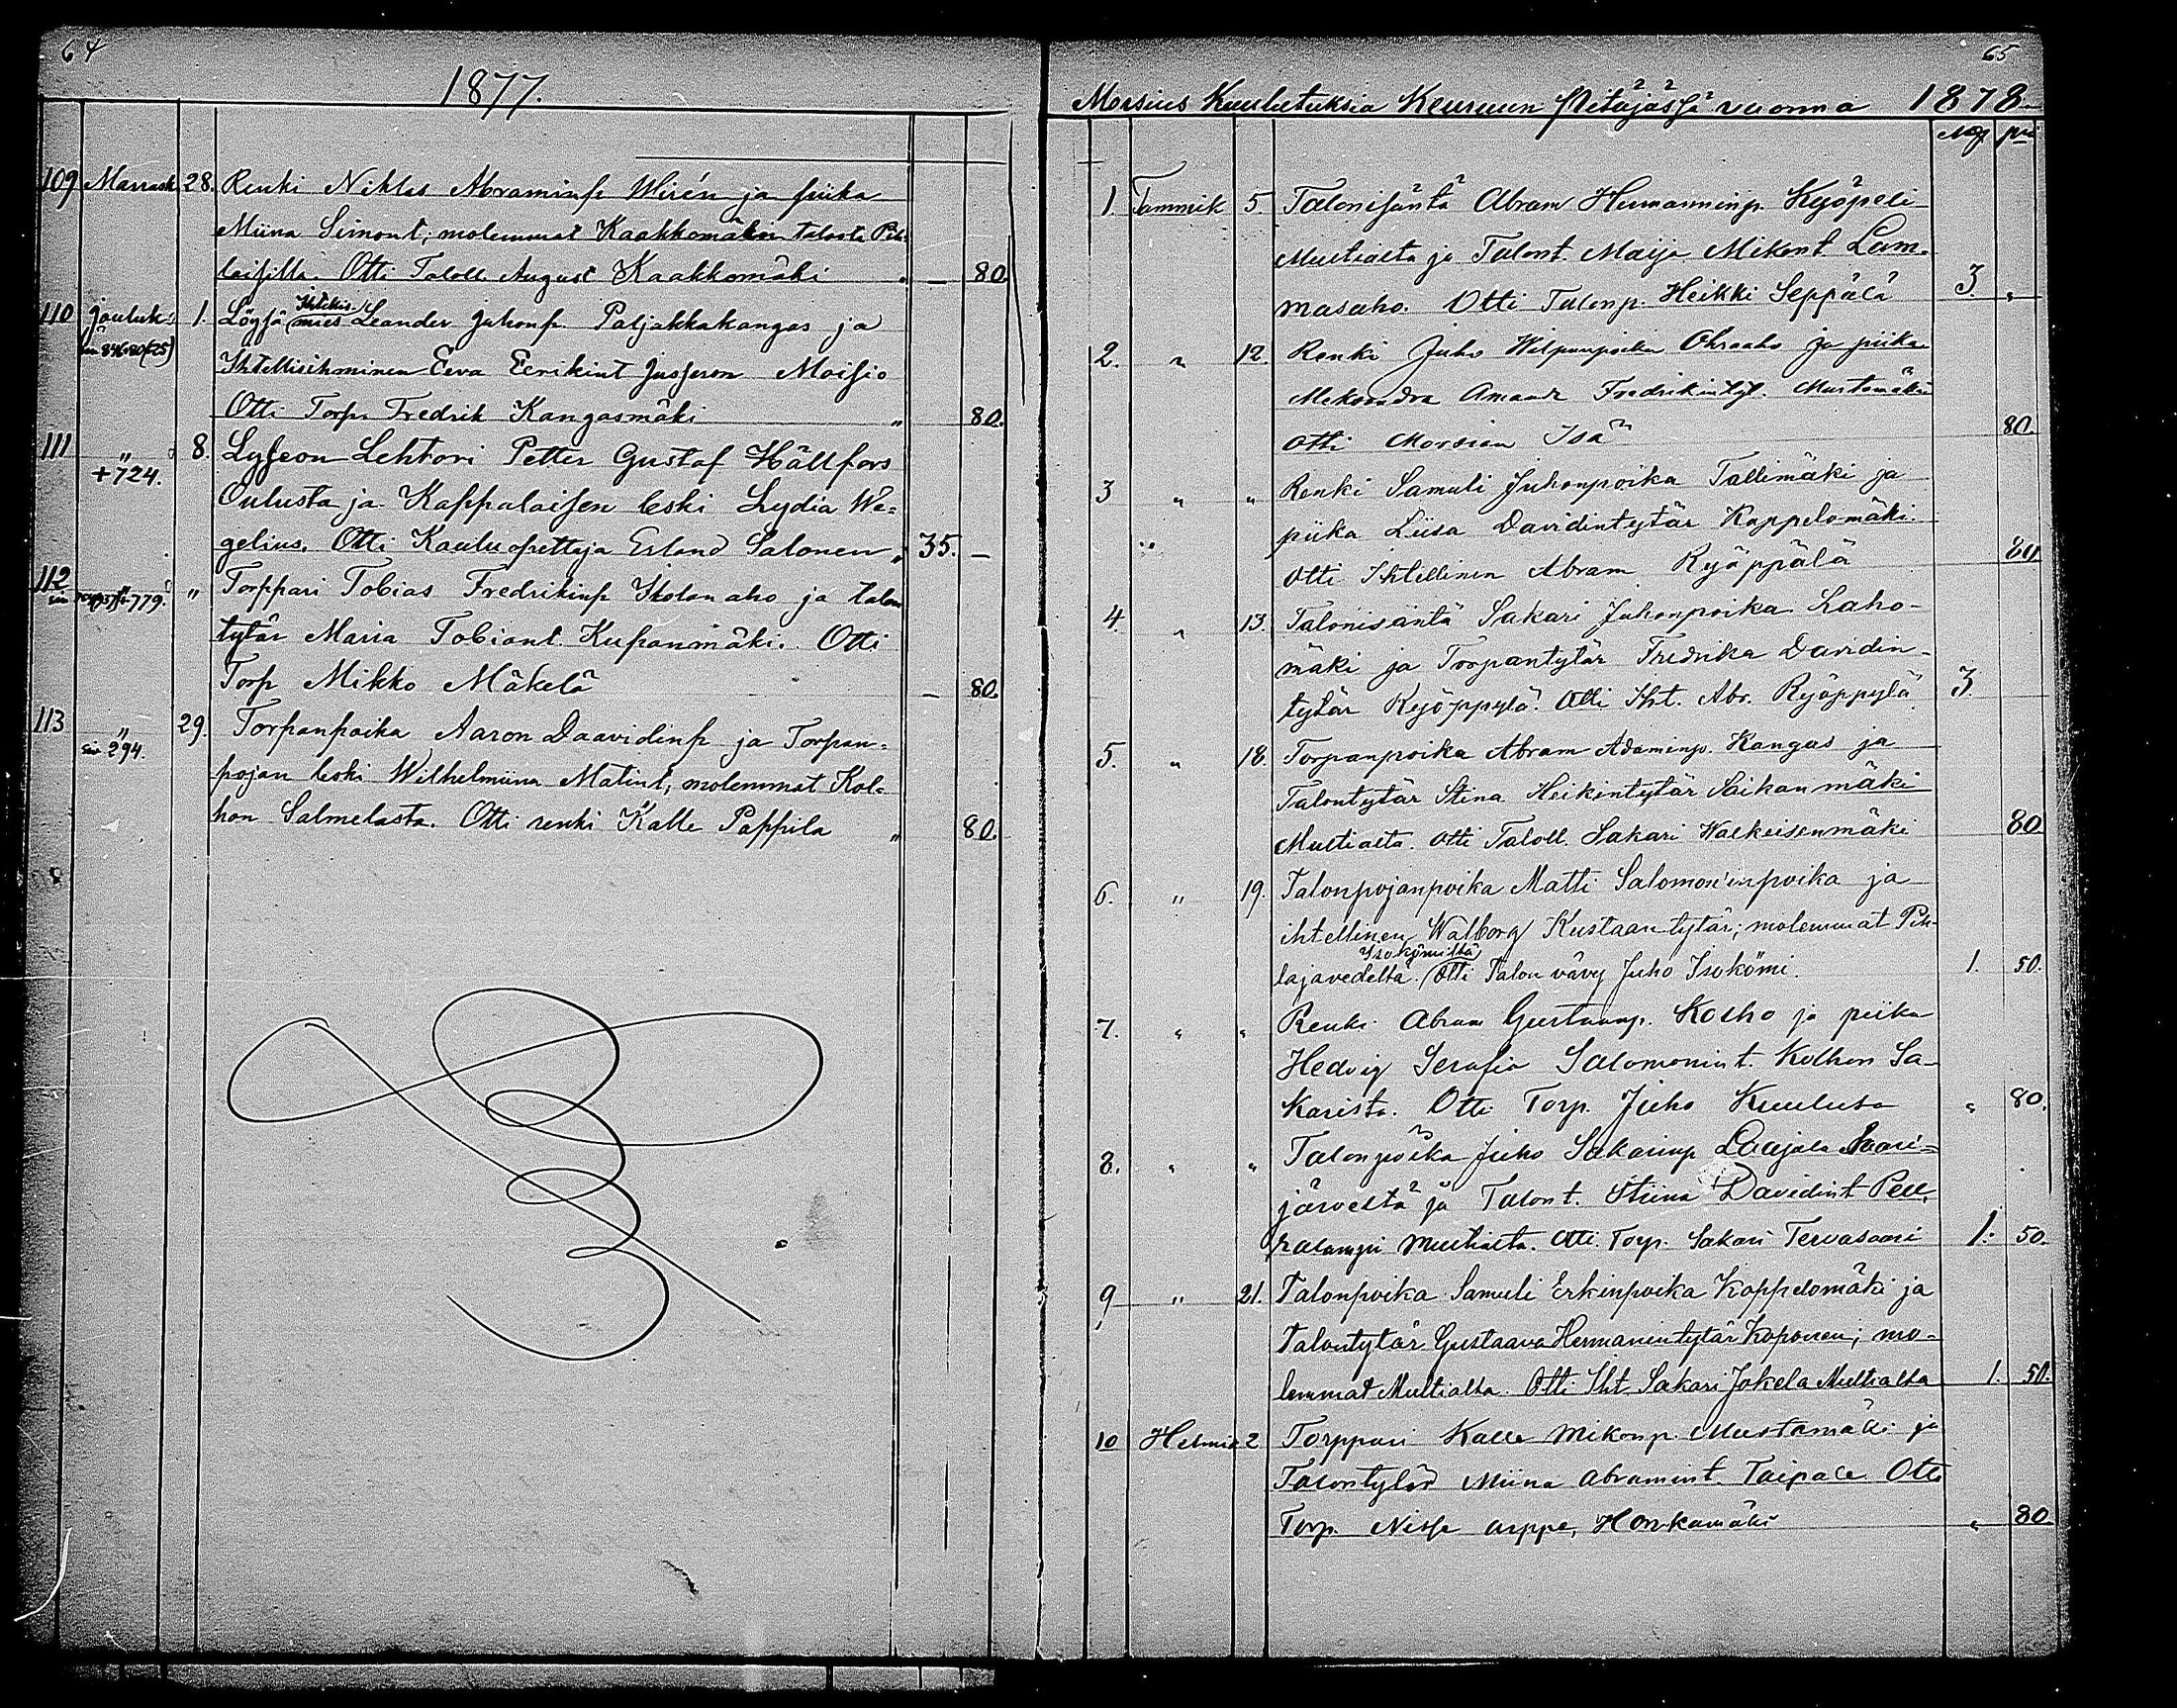 64
1877.
109 Marrask 28. Renki Niklas Abraminp Wirén ja piika
Miina Simont; molemmat Kaakkomäen talosta Pih-
laisilla. Otti Taloll. August Kaakkomäki " — 80.
110 Jouluk: 1. Löysä mies Leander Juhonp. Paljakkakangas ja
Ihtellisihminen Eeva Eerikint Jusseron Moisio
Otti Torp. Fredrik Kangasmäki " 80.
111 " 8. Lyseon Lehtori Petter Gustaf Hällfors
+724.
Oulusta ja Kappalaisen leski Lydia We-
gelius. Otti Kouluopettaja Erland Salonen " 35. —
112 779. " Torppari Tobias Fredrikinp Skolanaho ja talon
tytär Maria Tobiant. Kupanmäki. Otti
Torp Mikko Mäkelä — 80.
113 " 29. Torpanpoika Aaron Daavidinp ja Torpan-
siv 294.
pojan leski Wilhelmiina Matint, molemmat Kol-
hon Salmelasta. Otti renki Kalle Pappila " 80.
65
Morsius Kuulutuksia Keuruun Pitäjässä vuonna 1878
Mg pni
1. Tammik 5. Talonisäntä Abram Hermanninp. Kyöpeli
Multialta ja Talont. Maija Mikont. Lam-
masaho. Otti Talonp. Heikki Seppälä 3. "
2. " 12. Renki Juho Wilpunpoika Ohraaho ja piika
Aleksandra Amanda Fredrikintyt. Mustamäki
Otti Morsian Isä 80.
3 " " Renki Samuli Juhonpoika Tallimäki ja
piika Liisa Davidintytär Koppelomäki.
Otti Ihtellinen Abram Ryöppälä 80.
4. " 13. Talonisäntä Sakari Juhonpoika Laho-
mäki ja Torpantytär Fredrika Davidin-
tytär Ryöppylä. Otti Iht. Abr. Ryöppylä. 3
5. " 18. Torpanpoika Abram Adaminp. Kangas ja
Talontytär Stina Heikintytär Saikanmäki
Multialta. Otti Taloll. Sakari Walkeisenmäki 80
6. " 19. Talonpojanpoika Matti Salomoninpoika ja
ihtellinen Walborg Kustaantytär; molemmat Pih-
Isokömiltä
lajavedeltä. Otti Talon vävy Juho Isokömi. 1. 50.
7. " " Renki Abram Gustaanp. Kolho ja piika
Hedvig Serafia Salomonint. Kolhon Sa-
karista. Otti Torp. Juho Kuulusa " 80.
8. " " Talonpoika Juho Sakarinp Laajala Saari-
järveltä ja Talont. Stiina Davidint Pell.
ralampi Multialta. Otti Torp. Sakari Tervasaari 1. 50.
9 " 21. Talonpoika Samuli Erkinpoika Koppelomäki ja
Talontytär Gustaava Hermanintytär Koponen; mo-
lemmat Multialta. Otti Iht Sakari Jokela Multialta 1. 50.
10 Helmik 2 Torppari Kalle Mikonp. Mustamäki ja
Talontytär Miina Abramint. Taipale Otti
Torp. Nisse Arppe, Honkamäki " 80